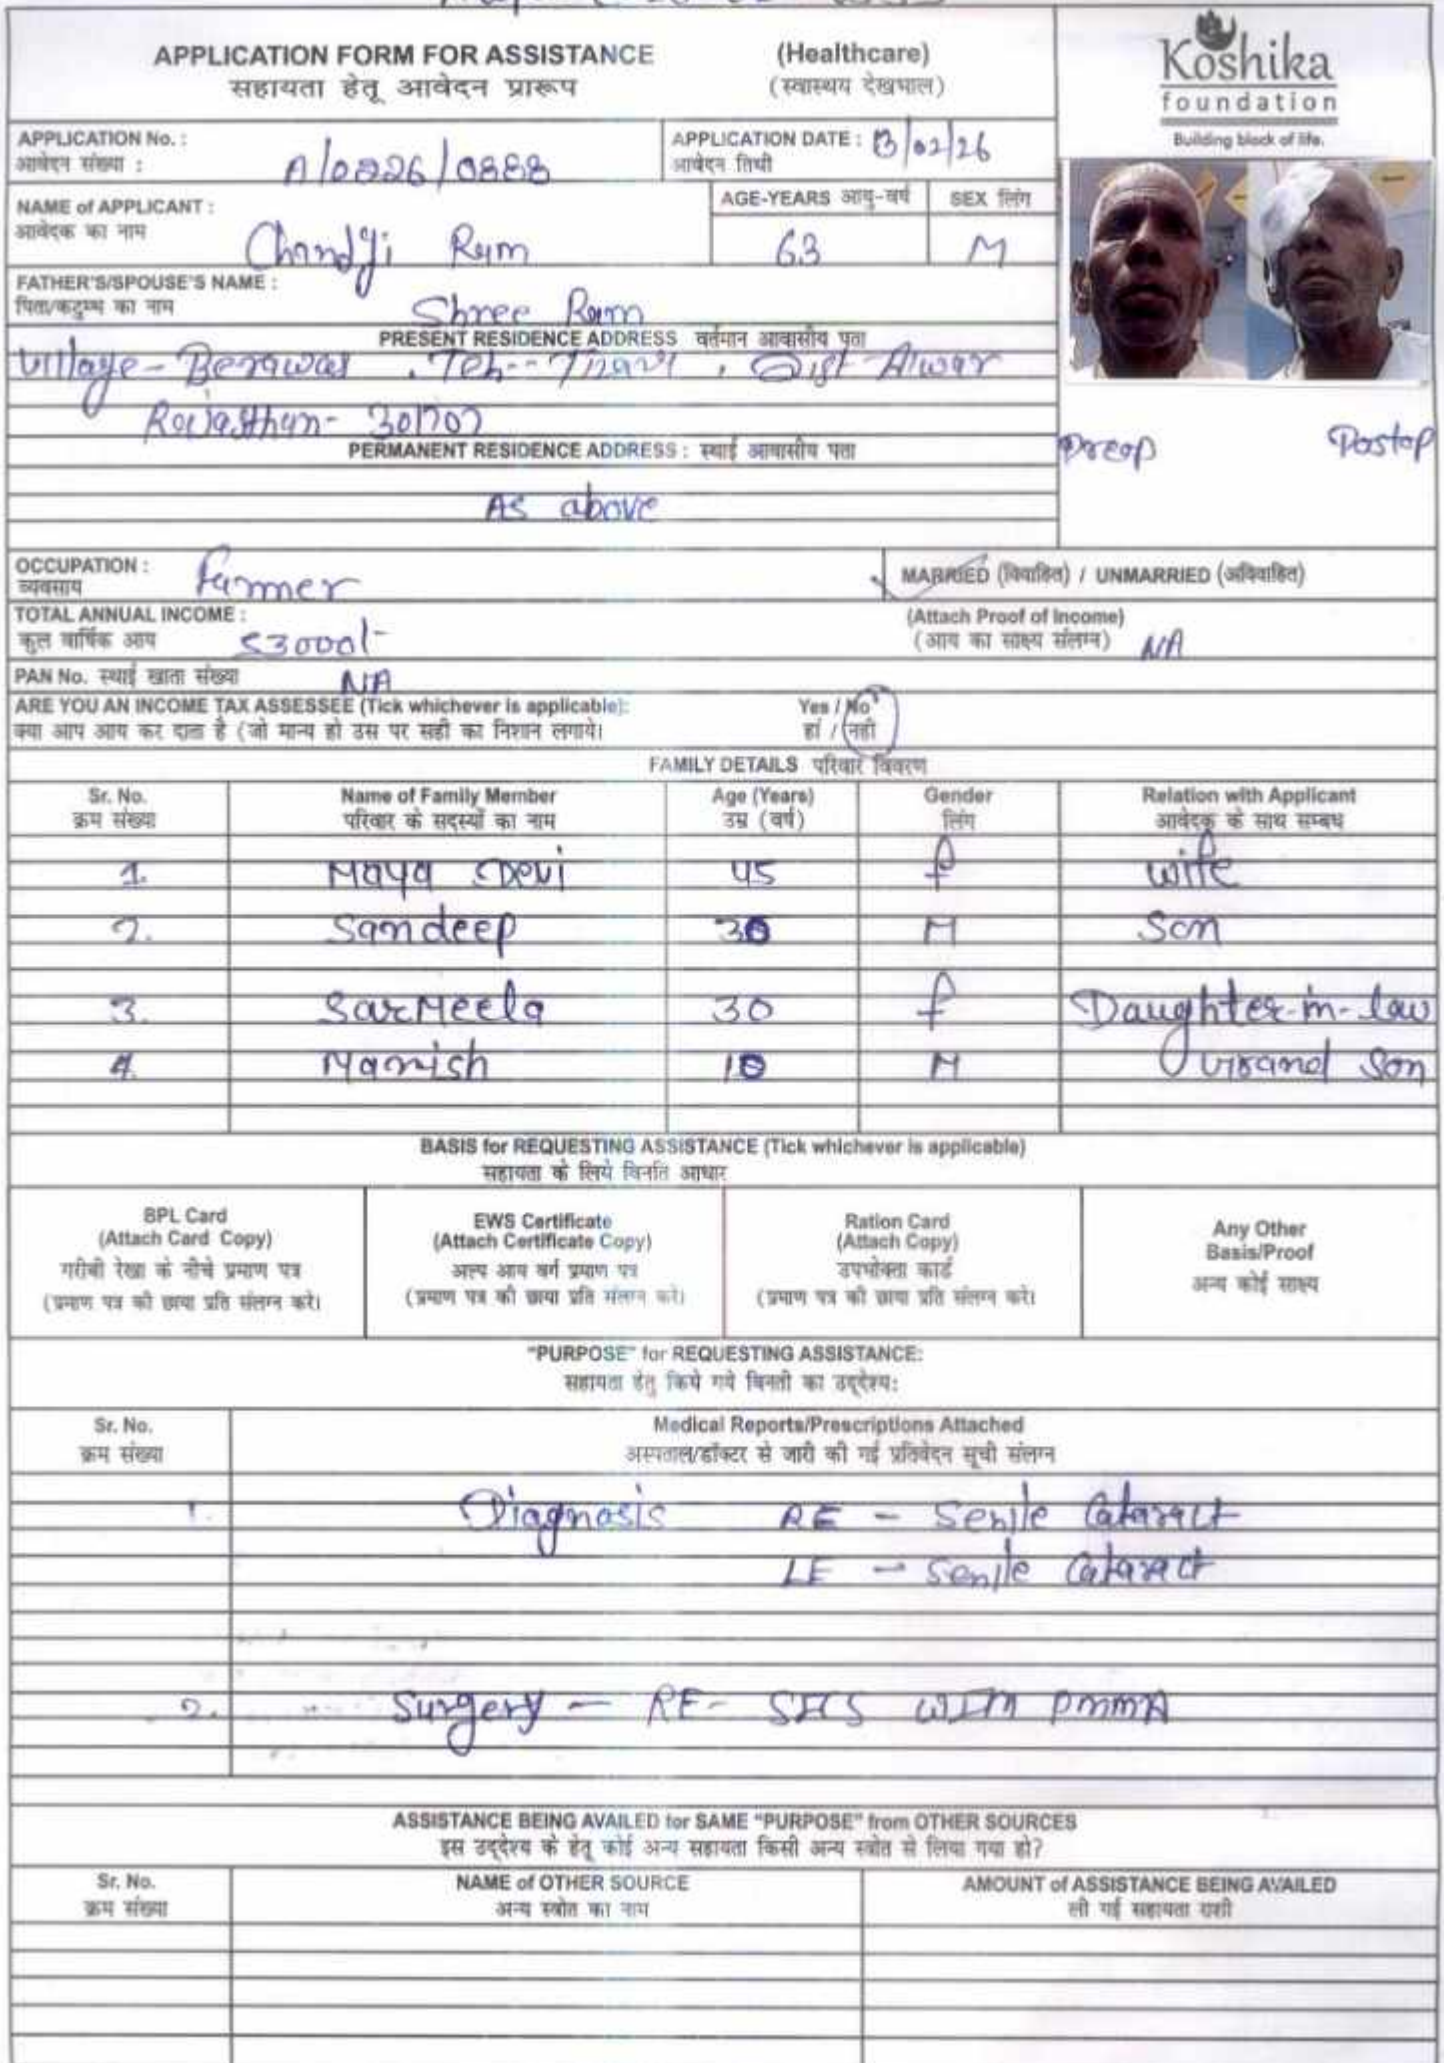 APPLICATION FORM FOR ASSISTANCE (Healthcare)
सहायता हेतू आवेदन प्रारूप (स्वास्थय देखभाल)
Koshika
foundation
Building block of life.
APPLICATION No. :
आवेदन संख्या : A/0226/0888
APPLICATION DATE : 13/02/26
आवेदन तिथी
NAME of APPLICANT :
आवेदक का नाम Chandgi Ram
AGE-YEARS आयु-वर्ष 63
SEX लिंग M
FATHER'S/SPOUSE'S NAME :
पिता/कटुम्ब का नाम Shree Ram
PRESENT RESIDENCE ADDRESS वर्तमान आवासीय पता
Village - Dist Alwar
Rajasthan - 301707
Preop Postop
PERMANENT RESIDENCE ADDRESS : स्थाई आवासीय पता
As above
OCCUPATION :
व्यवसाय Farmer
MARRIED (विवाहित) / UNMARRIED (अविवाहित)
TOTAL ANNUAL INCOME :
कुल वार्षिक आय 53000/-
(Attach Proof of Income)
(आय का साक्ष्य संलग्न) NA
PAN No. स्थाई खाता संख्या NA
ARE YOU AN INCOME TAX ASSESSEE (Tick whichever is applicable): Yes / No
क्या आप आय कर दाता है (जो मान्य हो उस पर सही का निशान लगाये। हां / नही
FAMILY DETAILS परिवार विवरण
Sr. No. Name of Family Member Age (Years) Gender Relation with Applicant
क्रम संख्या परिवार के सदस्यों का नाम उम्र (वर्ष) लिंग आवेदक के साथ सम्बध
1. Maya Devi 45 F wife
2. Sandeep 30 M Son
3. Sarmeela 30 F Daughter-in-law
4. Manish 10 M Grand Son
BASIS for REQUESTING ASSISTANCE (Tick whichever is applicable)
सहायता के लिये विनति आधार
BPL Card
(Attach Card Copy)
गरीबी रेखा के नीचे प्रमाण पत्र
(प्रमाण पत्र की छाया प्रति संलग्न करे।
EWS Certificate
(Attach Certificate Copy)
अल्प आय वर्ग प्रमाण पत्र
(प्रमाण पत्र की छाया प्रति संलग्न करे।
Ration Card
(Attach Copy)
उपभोक्ता कार्ड
(प्रमाण पत्र की छाया प्रति संलग्न करे।
Any Other
Basis/Proof
अन्य कोई साक्ष्य
"PURPOSE" for REQUESTING ASSISTANCE:
सहायता हेतु किये गये विनती का उद्देश्य:
Sr. No. Medical Reports/Prescriptions Attached
क्रम संख्या अस्पताल/डॉक्टर से जारी की गई प्रतिवेदन सूची संलग्न
1. Diagnosis RE - Senile Cataract
LE - Senile Cataract
2. Surgery - RE - SICS WITH PMMA
ASSISTANCE BEING AVAILED for SAME "PURPOSE" from OTHER SOURCES
इस उद्देश्य के हेतू कोई अन्य सहायता किसी अन्य स्त्रोत से लिया गया हो?
Sr. No. NAME of OTHER SOURCE AMOUNT of ASSISTANCE BEING AVAILED
क्रम संख्या अन्य स्त्रोत का नाम ली गई सहायता राशी